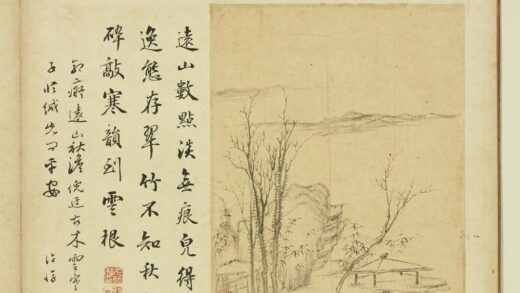 遠山數點淡無痕皃得
逸態存翠竹不知秋
碎敲寒韻到雲根
癡遠山秋澹倪迂古木雲寒
子平安